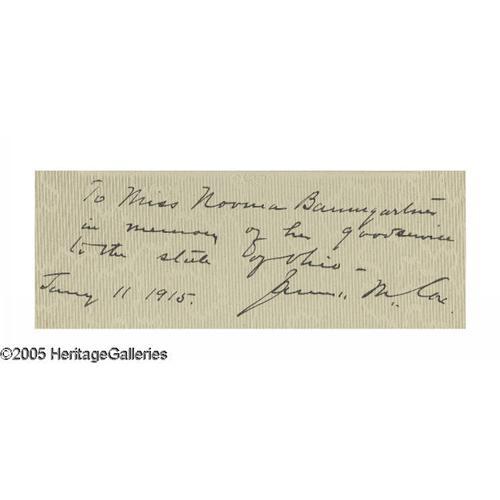 To Miss Norma Baumgartner
in memory of her good service
to the state of Ohio -
Jany 11 1915.
James M. Cox.
©2005 HeritageGalleries